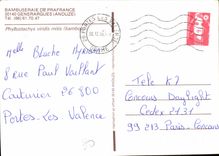 BAMBUSERAIE DE PRAFRANCE
30140 GENERARGUES (ANDUZE)
Tél. (66) 61.70.47
Phyllostachys viridis mitis
Melle Blache
8 rue Paul Vaillant
Couturier 26800
Portes Les Valence
Télé K7
Concours Daylight
Codex 2131
99213 Paris-Concours